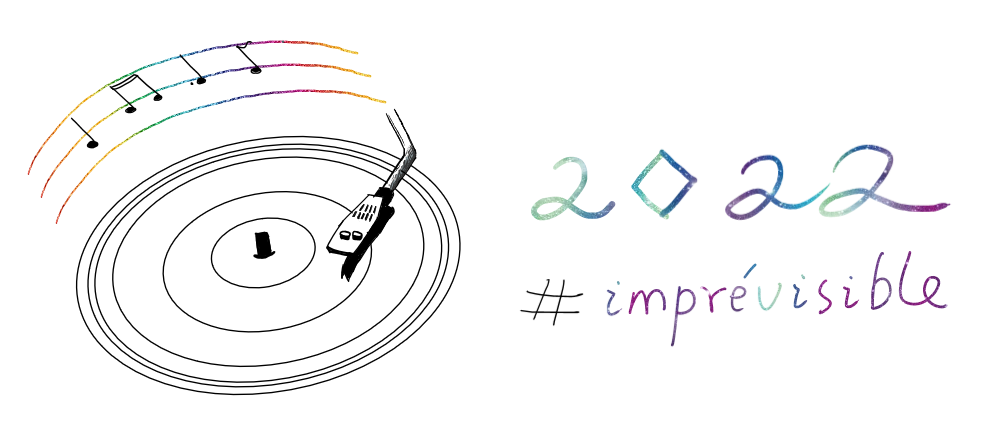 2022
#imprévisible